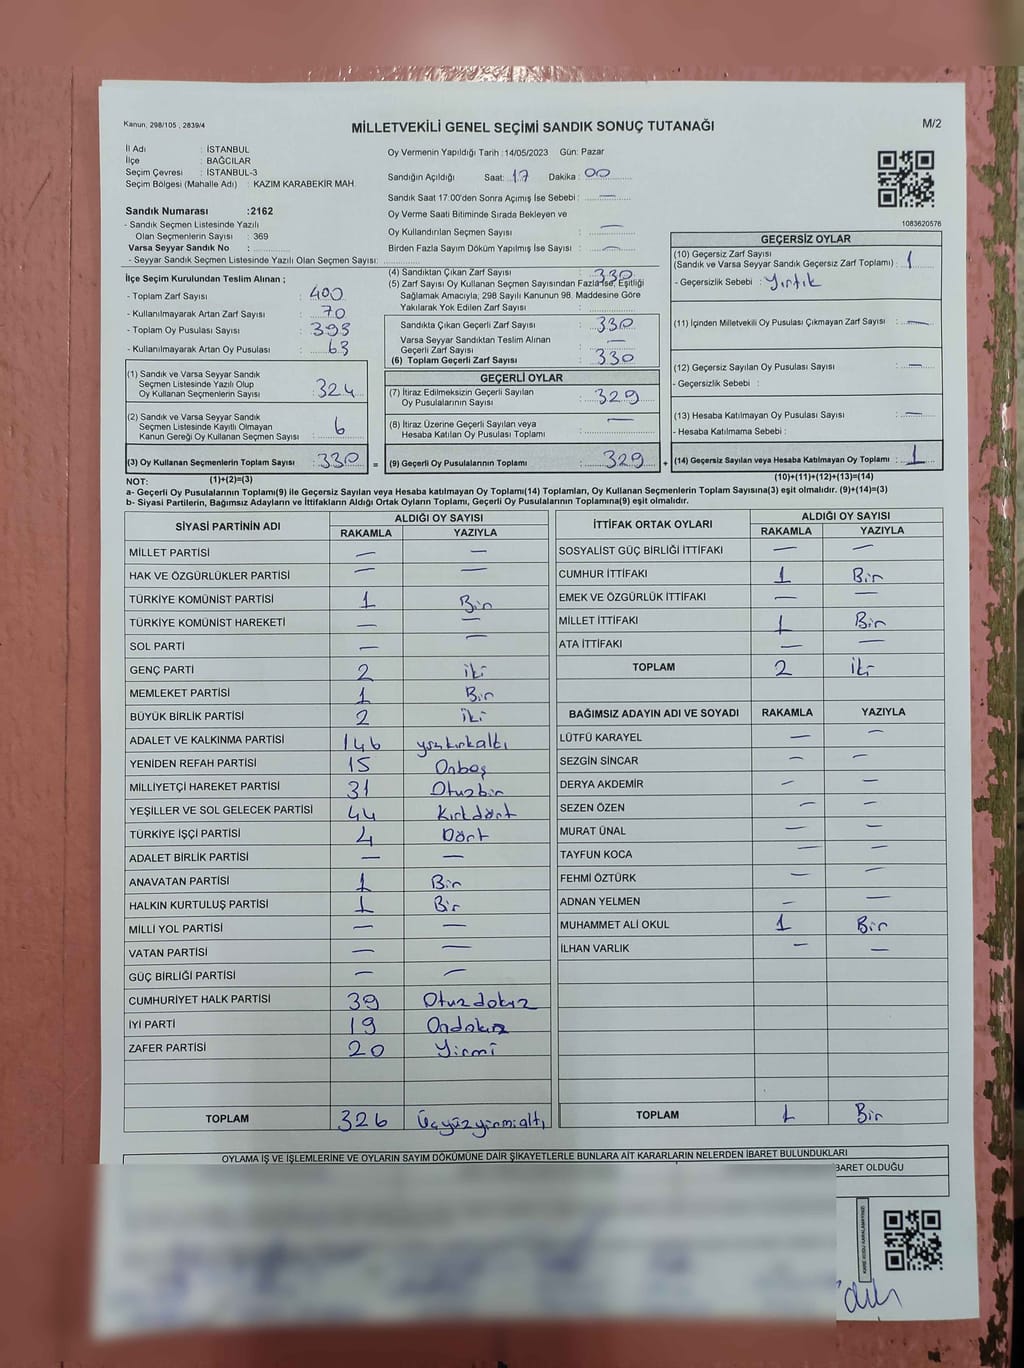 Kanun, 298/105 , 2839/4
MİLLETVEKİLİ GENEL SEÇİMİ SANDIK SONUÇ TUTANAĞI
M/2
İl Adı : İSTANBUL
İlçe : BAĞCILAR
Seçim Çevresi : İSTANBUL-3
Seçim Bölgesi (Mahalle Adı) : KAZIM KARABEKİR MAH.
Sandık Numarası :2162
- Sandık Seçmen Listesinde Yazılı
Olan Seçmenlerin Sayısı : 369
Varsa Seyyar Sandık No :
- Seyyar Sandık Seçmen Listesinde Yazılı Olan Seçmen Sayısı:
Oy Vermenin Yapıldığı Tarih :14/05/2023 Gün: Pazar
Sandığın Açıldığı Saat: 17 Dakika : 00
Sandık Saat 17:00'den Sonra Açımış İse Sebebi : —
Oy Verme Saati Bitiminde Sırada Bekleyen ve
Oy Kullandırılan Seçmen Sayısı : —
Birden Fazla Sayım Döküm Yapılmış İse Sayısı : —
1083620576
İlçe Seçim Kurulundan Teslim Alınan ;
- Toplam Zarf Sayısı : 400
- Kullanılmayarak Artan Zarf Sayısı : 70
- Toplam Oy Pusulası Sayısı : 393
- Kullanılmayarak Artan Oy Pusulası : 63
(1) Sandık ve Varsa Seyyar Sandık
Seçmen Listesinde Yazılı Olup
Oy Kullanan Seçmenlerin Sayısı : 324
(2) Sandık ve Varsa Seyyar Sandık
Seçmen Listesinde Kayıtlı Olmayan
Kanun Gereği Oy Kullanan Seçmen Sayısı : 6
(3) Oy Kullanan Seçmenlerin Toplam Sayısı : 330 =
(4) Sandıktan Çıkan Zarf Sayısı : 330
(5) Zarf Sayısı Oy Kullanan Seçmen Sayısından Fazla ise, Eşitliği
Sağlamak Amacıyla, 298 Sayılı Kanunun 98. Maddesine Göre
Yakılarak Yok Edilen Zarf Sayısı :
Sandıkta Çıkan Geçerli Zarf Sayısı : 330
Varsa Seyyar Sandıktan Teslim Alınan
Geçerli Zarf Sayısı : —
(6) Toplam Geçerli Zarf Sayısı : 330
GEÇERLİ OYLAR
(7) İtiraz Edilmeksizin Geçerli Sayılan
Oy Pusulalarının Sayısı : 329
(8) İtiraz Üzerine Geçerli Sayılan veya
Hesaba Katılan Oy Pusulası Toplamı : —
(9) Geçerli Oy Pusulalarının Toplamı : 329 +
GEÇERSİZ OYLAR
(10) Geçersiz Zarf Sayısı
(Sandık ve Varsa Seyyar Sandık Geçersiz Zarf Toplamı) : 1
- Geçersizlik Sebebi : Yırtık
(11) İçinden Milletvekili Oy Pusulası Çıkmayan Zarf Sayısı : —
(12) Geçersiz Sayılan Oy Pusulası Sayısı : —
- Geçersizlik Sebebi :
(13) Hesaba Katılmayan Oy Pusulası Sayısı : —
- Hesaba Katılmama Sebebi :
(14) Geçersiz Sayılan veya Hesaba Katılmayan Oy Toplamı : 1
NOT: (1)+(2)=(3) (10)+(11)+(12)+(13)=(14)
a- Geçerli Oy Pusulalarının Toplamı(9) ile Geçersiz Sayılan veya Hesaba katılmayan Oy Toplamı(14) Toplamları, Oy Kullanan Seçmenlerin Toplam Sayısına(3) eşit olmalıdır. (9)+(14)=(3)
b- Siyasi Partilerin, Bağımsız Adayların ve İttifakların Aldığı Ortak Oyların Toplamı, Geçerli Oy Pusulalarının Toplamına(9) eşit olmalıdır.
SİYASİ PARTİNİN ADI ALDIĞI OY SAYISI
RAKAMLA YAZIYLA
MİLLET PARTİSİ — —
HAK VE ÖZGÜRLÜKLER PARTİSİ — —
TÜRKİYE KOMÜNİST PARTİSİ 1 Bir
TÜRKİYE KOMÜNİST HAREKETİ — —
SOL PARTİ — —
GENÇ PARTİ 2 iki
MEMLEKET PARTİSİ 1 Bir
BÜYÜK BİRLİK PARTİSİ 2 iki
ADALET VE KALKINMA PARTİSİ 146 yüzkırkaltı
YENİDEN REFAH PARTİSİ 15 Onbeş
MİLLİYETÇİ HAREKET PARTİSİ 31 Otuzbir
YEŞİLLER VE SOL GELECEK PARTİSİ 44 Kırkdört
TÜRKİYE İŞÇİ PARTİSİ 4 Dört
ADALET BİRLİK PARTİSİ — —
ANAVATAN PARTİSİ 1 Bir
HALKIN KURTULUŞ PARTİSİ 1 Bir
MİLLİ YOL PARTİSİ — —
VATAN PARTİSİ — —
GÜÇ BİRLİĞİ PARTİSİ — —
CUMHURİYET HALK PARTİSİ 39 Otuzdokuz
İYİ PARTİ 19 Ondokuz
ZAFER PARTİSİ 20 Yirmi
TOPLAM 326 Üçyüzyirmialtı
İTTİFAK ORTAK OYLARI ALDIĞI OY SAYISI
RAKAMLA YAZIYLA
SOSYALİST GÜÇ BİRLİĞİ İTTİFAKI — —
CUMHUR İTTİFAKI 1 Bir
EMEK VE ÖZGÜRLÜK İTTİFAKI — —
MİLLET İTTİFAKI 1 Bir
ATA İTTİFAKI — —
TOPLAM 2 iki
BAĞIMSIZ ADAYIN ADI VE SOYADI RAKAMLA YAZIYLA
LÜTFÜ KARAYEL — —
SEZGİN SİNCAR — —
DERYA AKDEMİR — —
SEZEN ÖZEN — —
MURAT ÜNAL — —
TAYFUN KOCA — —
FEHMİ ÖZTÜRK — —
ADNAN YELMEN — —
MUHAMMET ALİ OKUL 1 Bir
İLHAN VARLIK — —
TOPLAM 1 Bir
OYLAMA İŞ VE İŞLEMLERİNE VE OYLARIN SAYIM DÖKÜMÜNE DAİR ŞİKAYETLERLE BUNLARA AİT KARARLARIN NELERDEN İBARET BULUNDUKLARI
BARET OLDUĞU